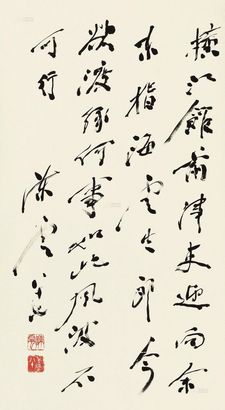 横江館前津吏迎向余
东指海云生郎今
欲渡缘何事如此風波不
可行
陈云